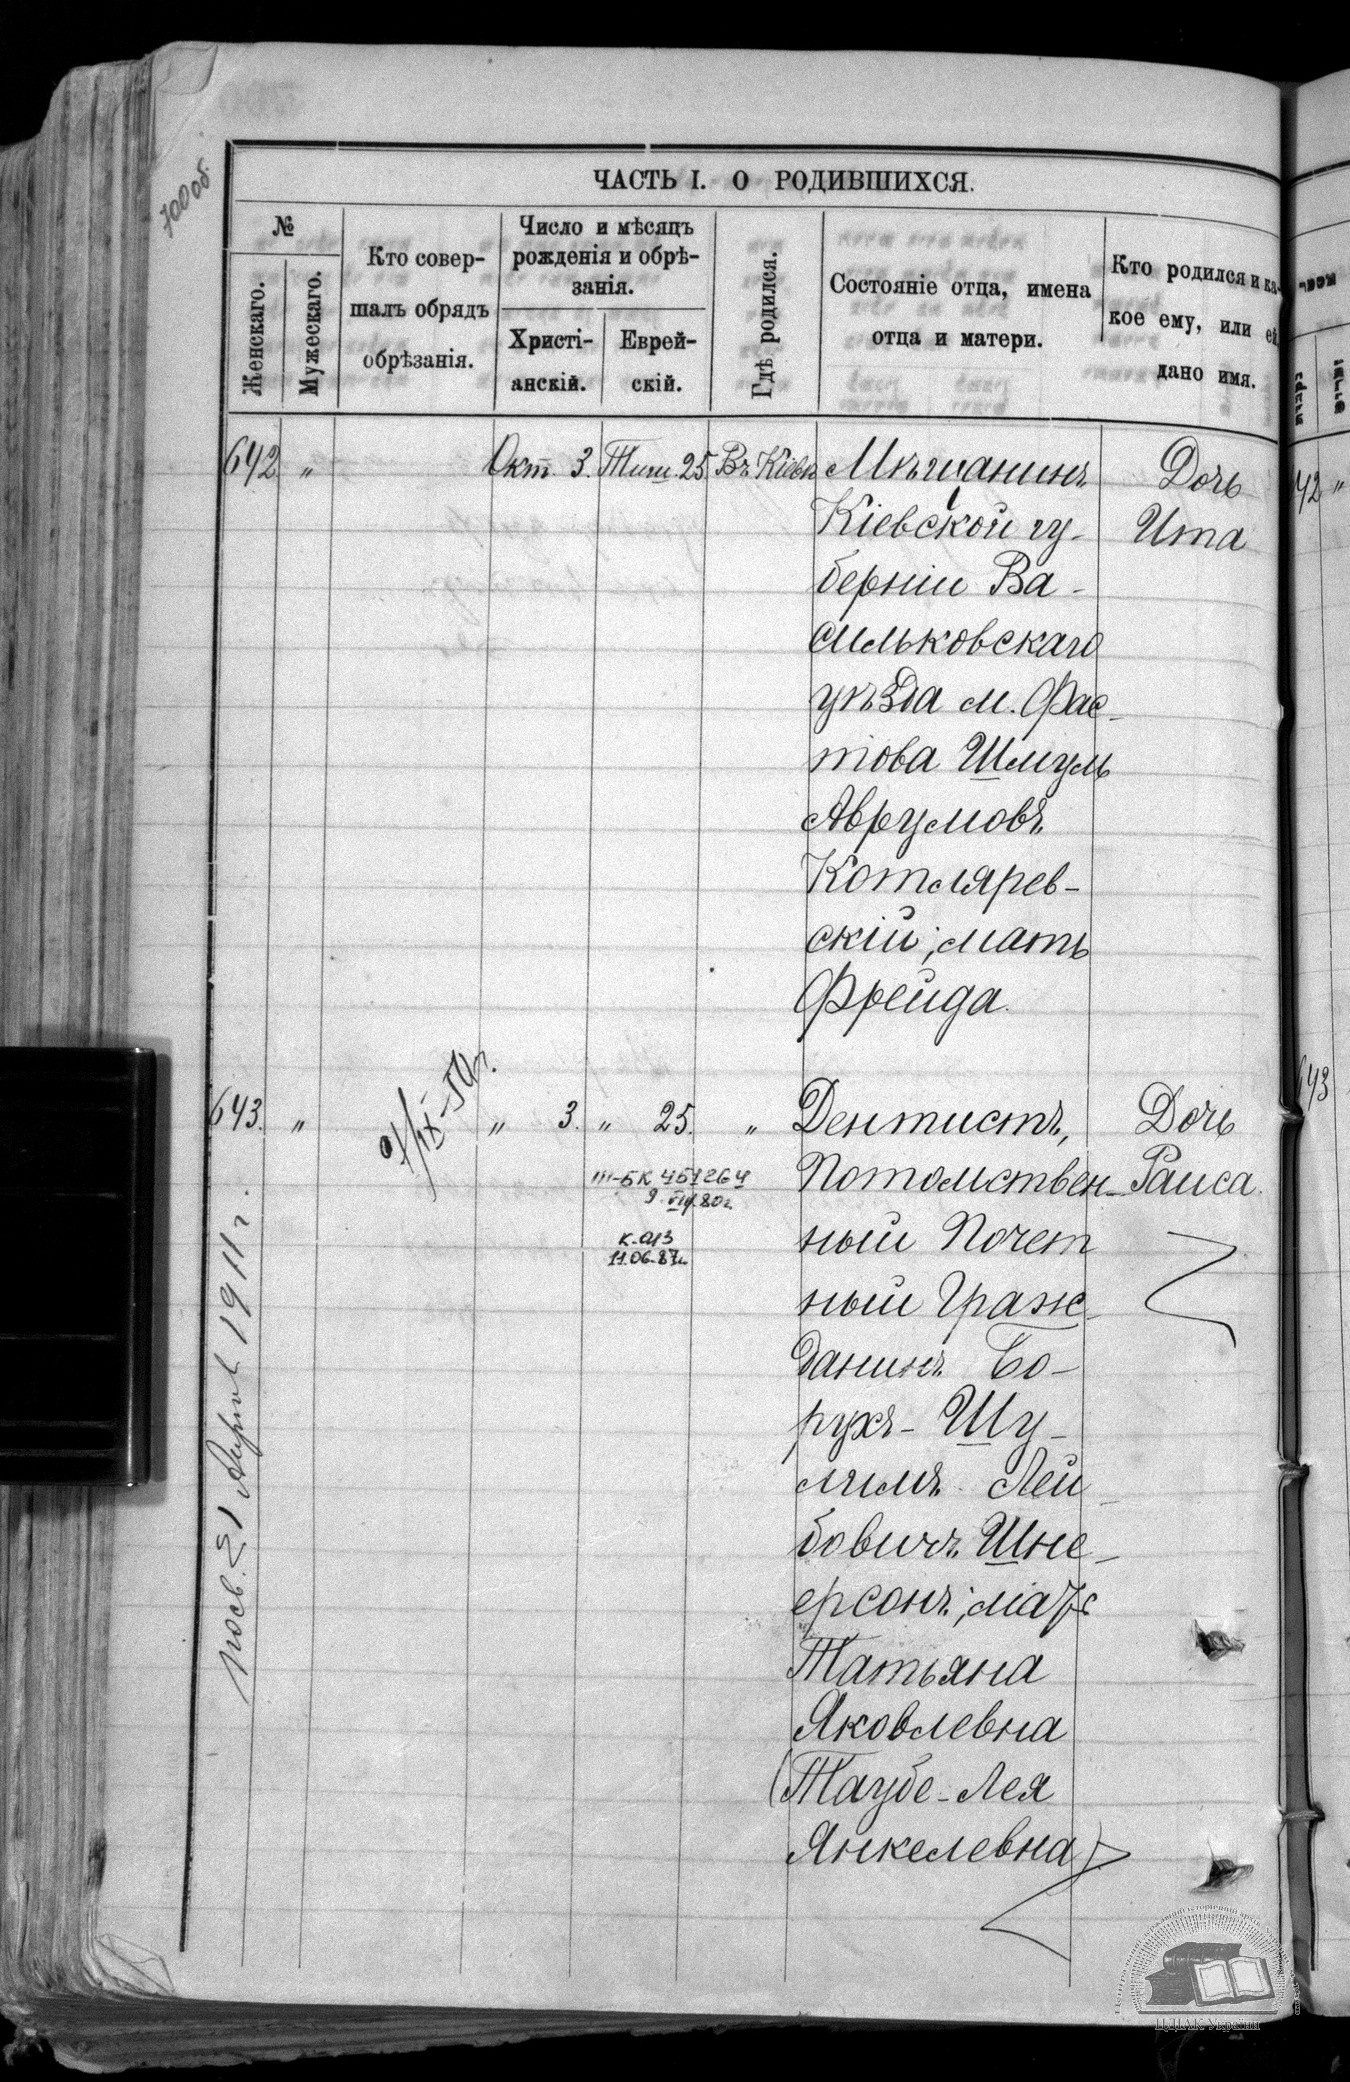 700об.
ЧАСТЬ I. О РОДИВШИХСЯ.
№
Женскаго.
Мужескаго.
Кто совер-
шалъ обрядъ
обрѣзанія.
Число и мѣсяцъ
рожденія и обрѣ-
занія.
Христі-
анскій.
Еврей-
скій.
Гдѣ родился.
Состояніе отца, имена
отца и матери.
Кто родился и ка-
кое ему, или ей,
дано имя.
642 " Окт. 3. Тиш. 25. Въ Кіевѣ
Мѣщанинъ
Кіевской гу-
берніи Ва-
сильковскаго
уѣзда м. Фас-
това Шмуль
Аврумовъ
Котлярев-
скій; мать
Фрейда.
Дочь
Ита
643. " " 3. " 25. "
Дентистъ,
Потомствен-
ный Почет
ный Граж-
данинъ Бо-
рухъ-Шу-
лимъ Лей-
бовичъ Шне-
ерсонъ; мать
Татьяна
Яковлевна
(Таубе-Лея
Янкелевна)
Дочь
Раиса.
/IX-50г.
III-БК 451264
9.VIII.80г.
11.06.87г.
1911 г.
42 "
643
ЦДІАК України